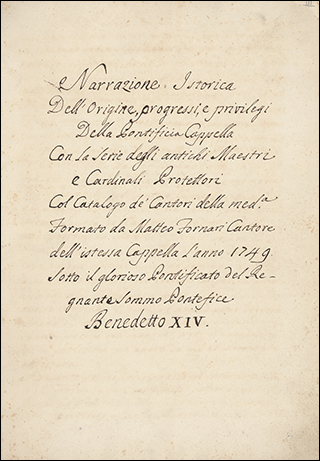 Narrazione Istorica
Dell'Origine, progressi, e privilegi
Della Pontificia Cappella
Con la Serie degli antichi Maestri
e Cardinali Protettori
Col Catalogo de' Cantori della med.a
Formato da Matteo Fornari Cantore
dell'istessa Cappella l'anno 1749.
Sotto il glorioso Pontificato del Re-
gnante Sommo Pontefice
Benedetto XIV.